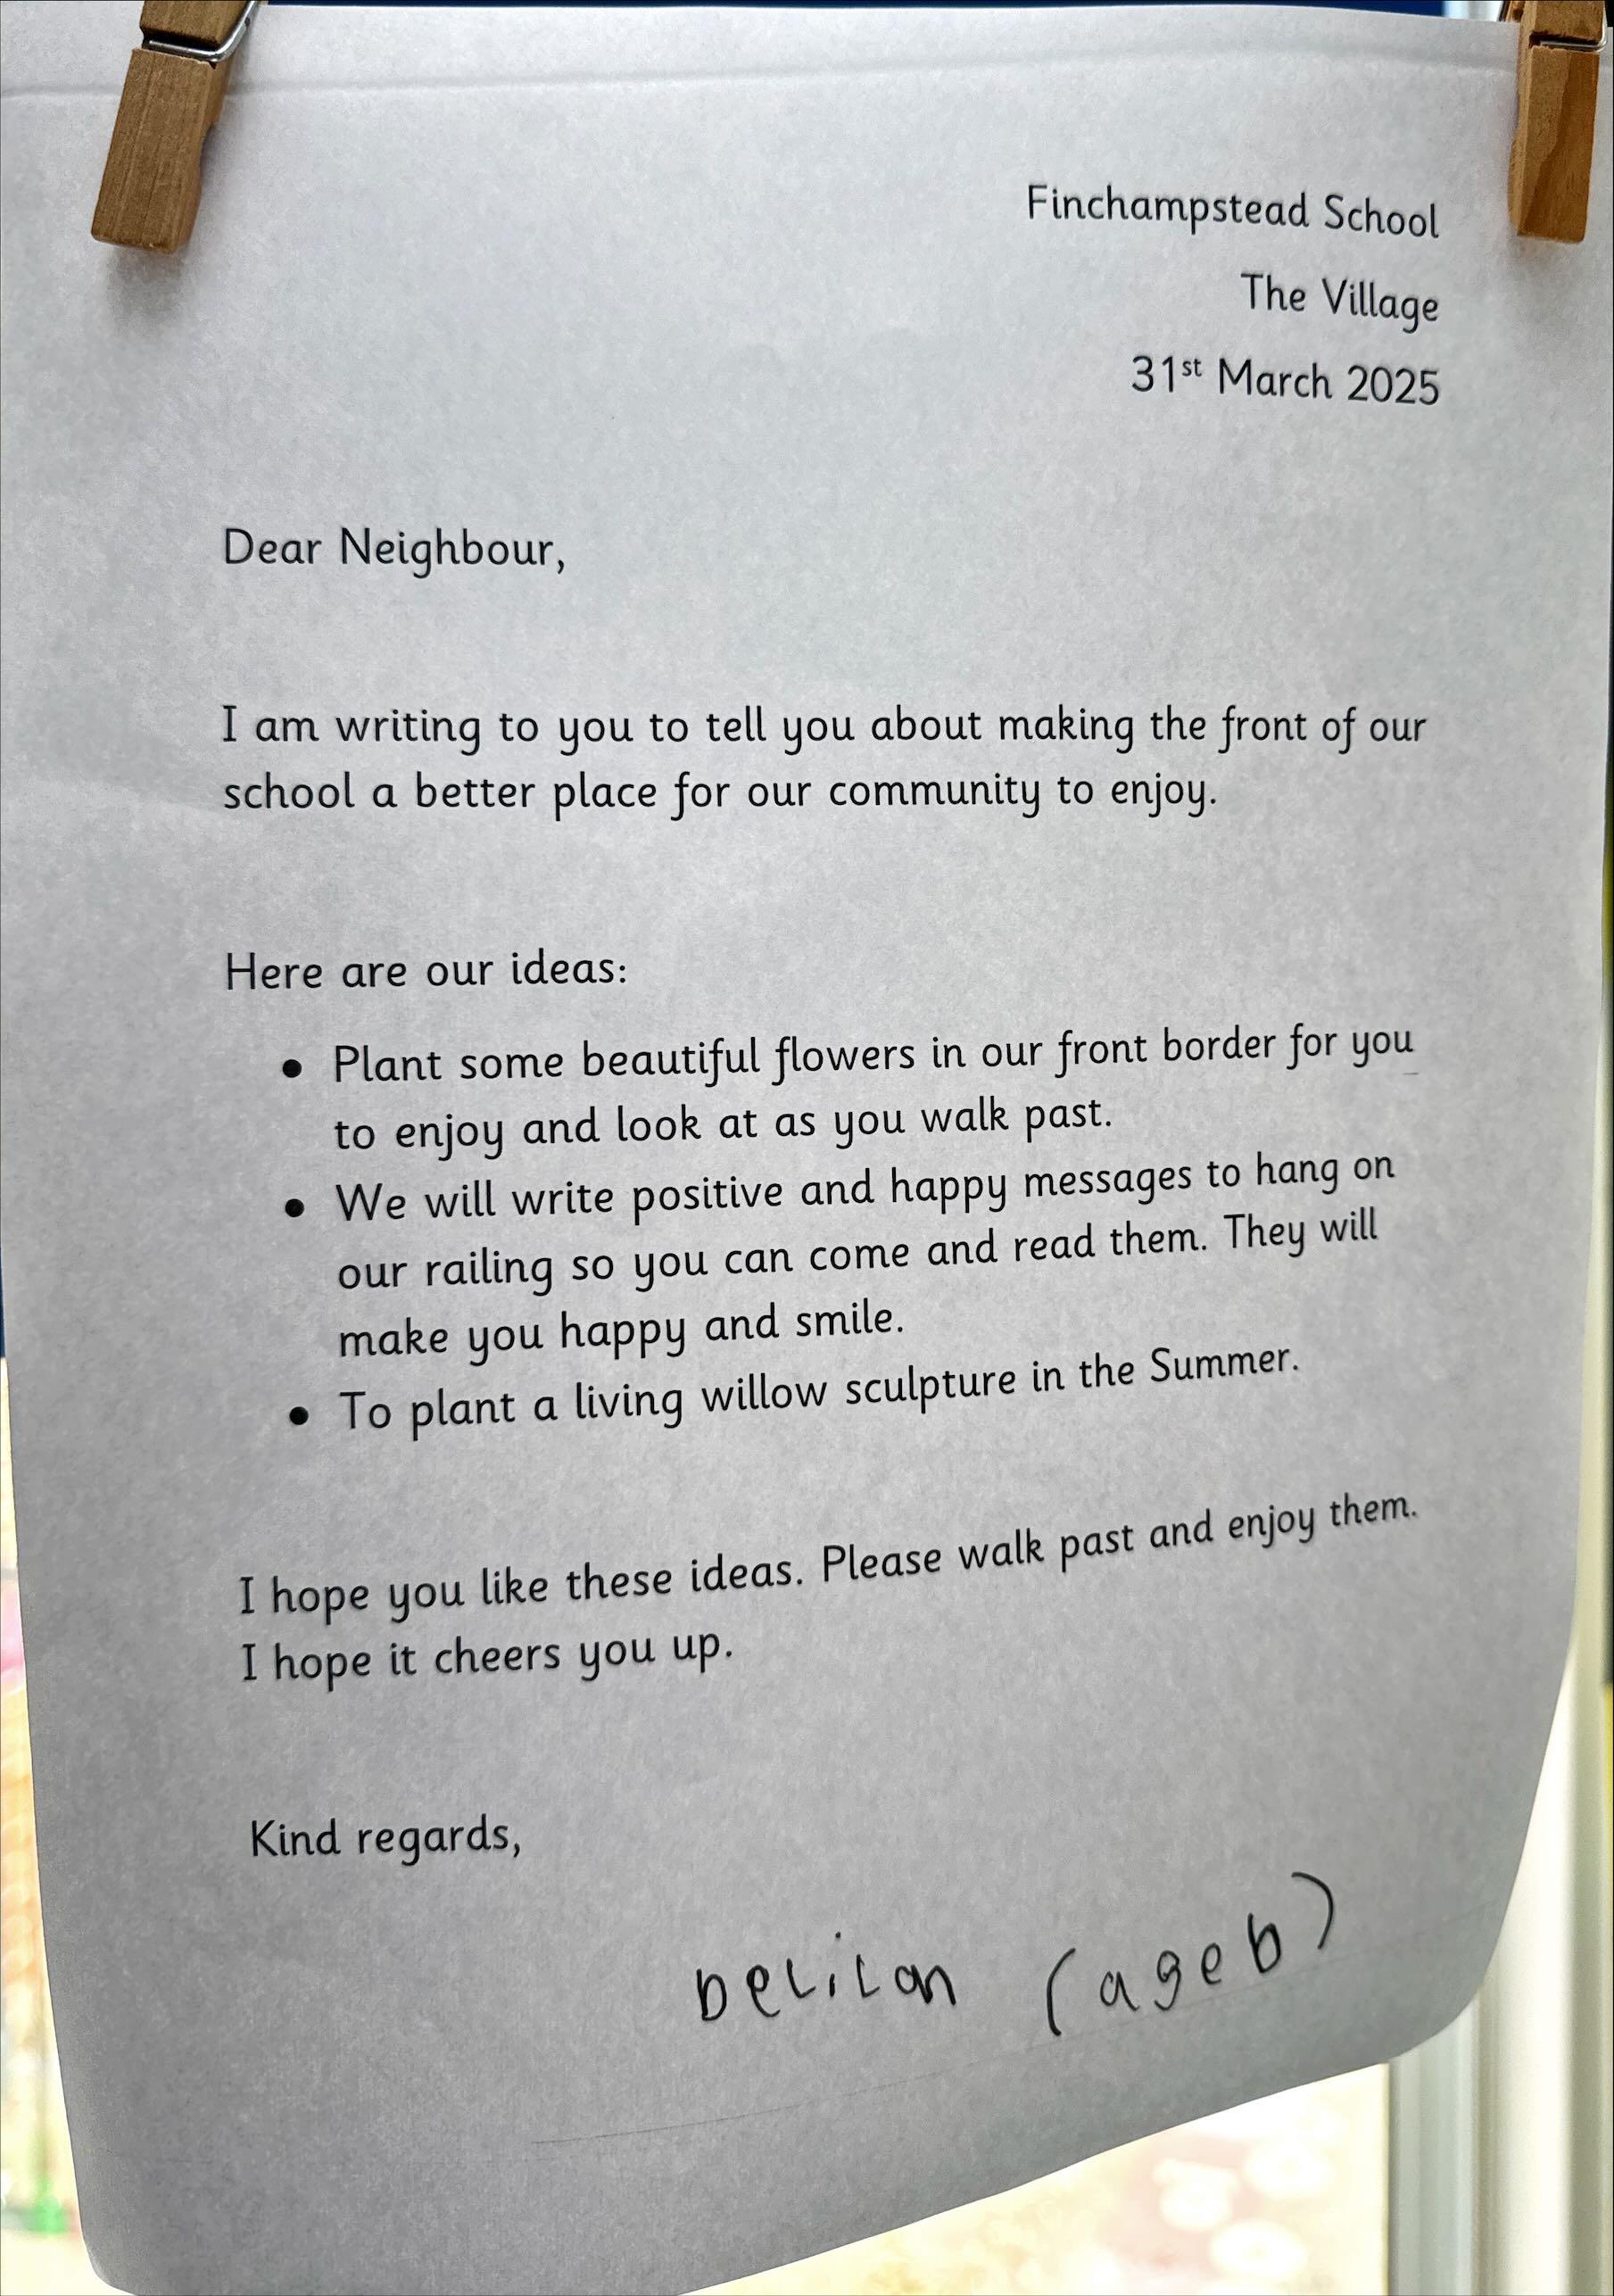 Finchampstead School
The Village
31st March 2025
Dear Neighbour,
I am writing to you to tell you about making the front of our
school a better place for our community to enjoy.
Here are our ideas:
• Plant some beautiful flowers in our front border for you
to enjoy and look at as you walk past.
• We will write positive and happy messages to hang on
our railing so you can come and read them. They will
make you happy and smile.
• To plant a living willow sculpture in the Summer.
I hope you like these ideas. Please walk past and enjoy them.
I hope it cheers you up.
Kind regards,
(age 6)